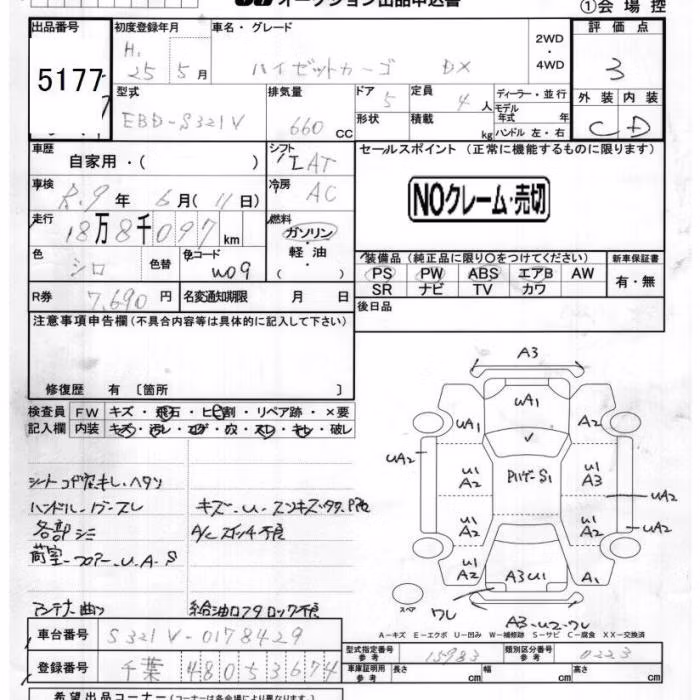 オークション出品申込書
①会場控
出品番号 5177
初度登録年月 H. 25 5月
車名・グレード ハイゼットカーゴ DX
2WD・4WD
評価点 3
型式 EBD-S321V
排気量 660 CC
ドア 5
形状
定員 4人
積載 kg
ディーラー・並行
モデル年式 年
ハンドル 左・右
外装 内装
C D
車歴 自家用・( )
シフト IAT
セールスポイント (正常に機能するものに限ります)
車検 R.9年 6月(11日)
冷房 AC
NOクレーム・売切
走行 18万8千097km
燃料 ガソリン・軽油・( )
色 シロ 色替
色コード W09
装備品 (純正品に限り○をつけてください)
新車保証書
PS PW ABS エアB AW
SR ナビ TV カワ
有・無
R券 7,690円
名変通知期限 月 日
後日品
注意事項申告欄(不具合内容等は具体的に記入して下さい)
修復歴 有 〔箇所 〕
検査員記入欄
FW キズ・飛石・ヒビ割・リペア跡・×要
内装 キズ・汚レ・コゲ・穴・スレ・キレ・破レ
ハンドル
各部シミ
A/Cスイッチ不良
荷室-フロアー-U.A S
アンテナ曲り
給油口フタロック不良
A3
UA1
UA1
A2
UA2
U1 A2
U1 A3
UA2
U1 A2
U1 A2
UA2
U1 A2
A3U1
A1
スペア
ワレ
A3-U2-ワレ
A-キズ E-エクボ U-凹み W-補修跡 S-サビ C-腐食 XX-交換済
車台番号 S321V-0178429
型式指定番号 参考 15983
類別区分番号 参考 0223
登録番号 千葉 480 5 3674
車庫証明用参考 長さ cm 幅 cm 高さ cm
希望出品コーナー(コーナーは各会場により異なります。)